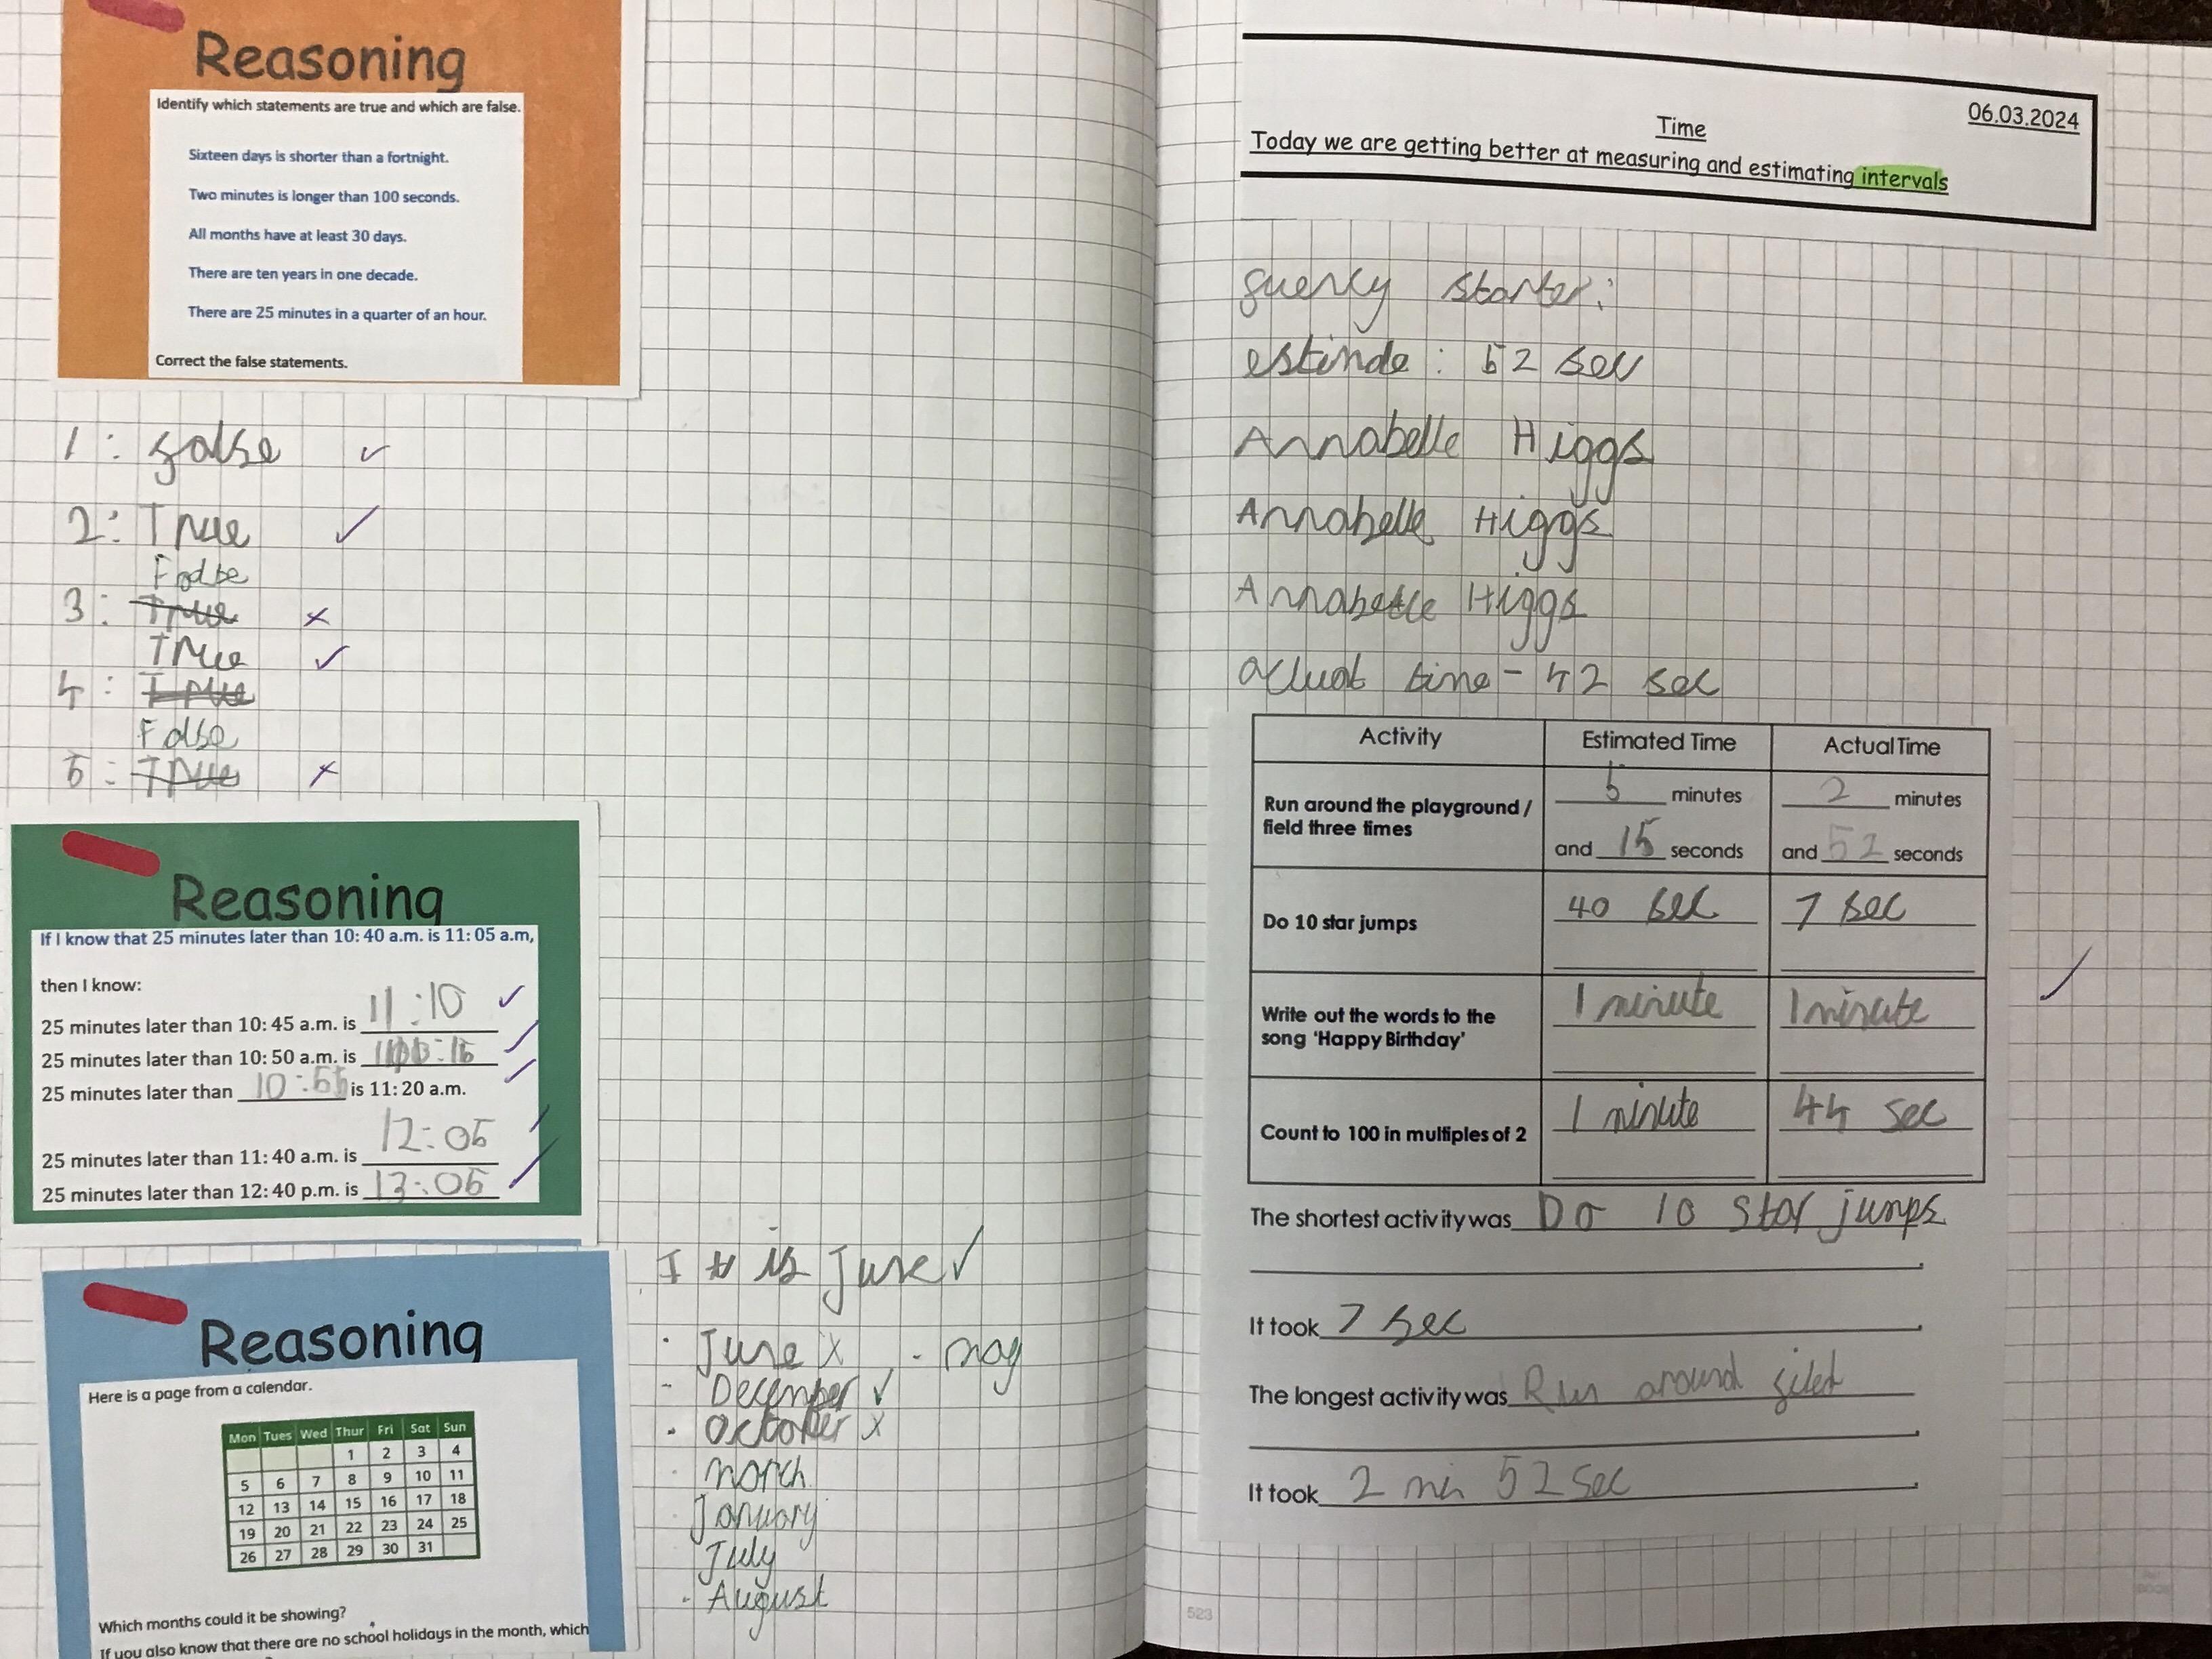 Reasoning
Identify which statements are true and which are false.
Sixteen days is shorter than a fortnight.
Two minutes is longer than 100 seconds.
All months have at least 30 days.
There are ten years in one decade.
There are 25 minutes in a quarter of an hour.
Correct the false statements.
1: false
2: True
False
3: True
True
4: True
False
5: True
Reasoning
If I know that 25 minutes later than 10:40 a.m. is 11:05 a.m,
then I know:
25 minutes later than 10:45 a.m. is 11:10
25 minutes later than 10:50 a.m. is
25 minutes later than 10:55 is 11:20 a.m.
25 minutes later than 11:40 a.m. is 12:05
25 minutes later than 12:40 p.m. is 13:05
Reasoning
Here is a page from a calendar.
Mon Tues Wed Thur Fri Sat Sun
1 2 3 4
5 6 7 8 9 10 11
12 13 14 15 16 17 18
19 20 21 22 23 24 25
26 27 28 29 30 31
Which months could it be showing?
If you also know that there are no school holidays in the month, which
is June
June - may
- December
- October
march
January
July
- August
06.03.2024
Time
Today we are getting better at measuring and estimating intervals
starter:
: 52 sec
Annabelle Higgs
Annabelle Higgs
Annabelle Higgs
actual time - 42 sec
Activity Estimated Time Actual Time
Run around the playground / field three times 5 minutes and 15 seconds 2 minutes and 52 seconds
Do 10 star jumps 40 sec 7 sec
Write out the words to the song 'Happy Birthday' 1 minute 1 minute
Count to 100 in multiples of 2 1 minute 44 sec
The shortest activity was Do 10 star jumps
It took 7 sec
The longest activity was Run around
It took 2 min 52 sec
523